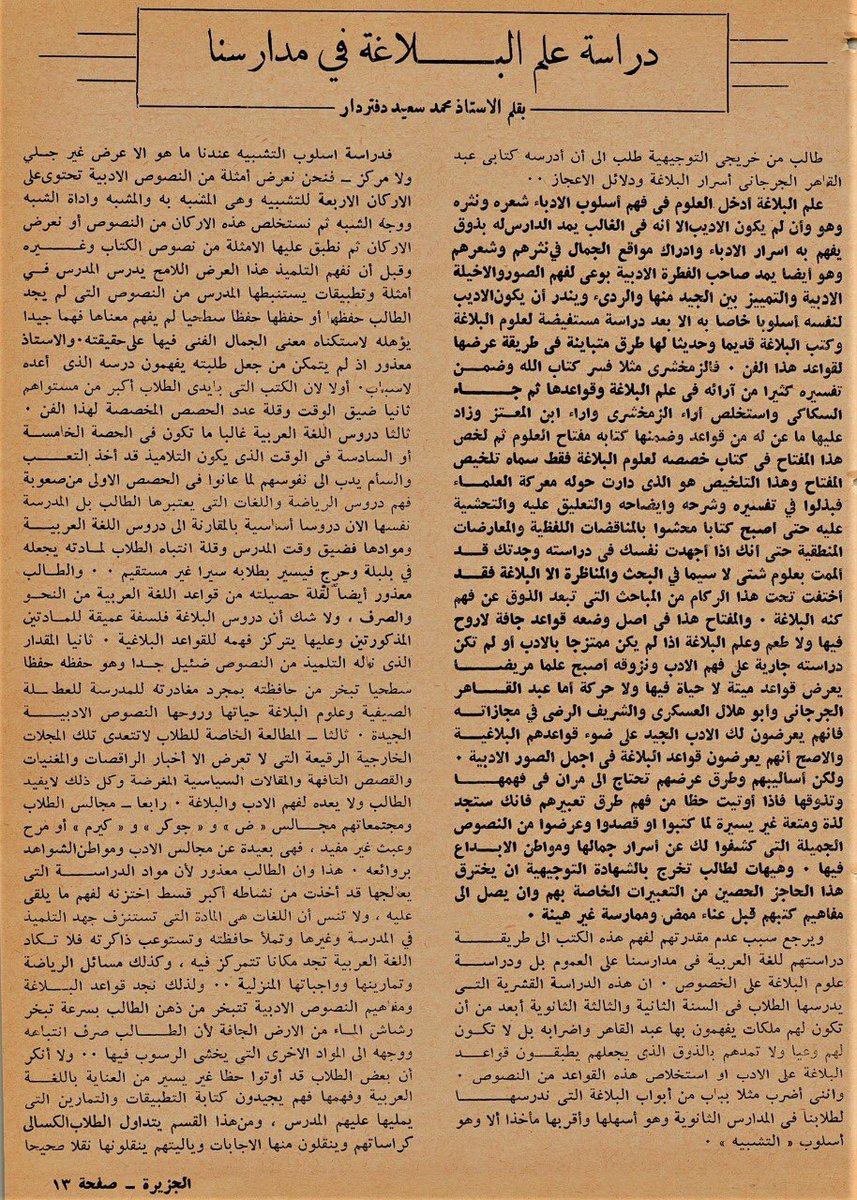 دراسة علم البــــلاغة في مدارسنا
بقلم الاستاذ محمد سعيد دفتردار
طالب من خريجى التوجيهية طلب الى أن أدرسه كتابى عبد
القاهر الجرجانى أسرار البلاغة ودلائل الاعجاز ٠٠
علم البلاغة أدخل العلوم فى فهم أسلوب الادباء شعره ونثره
وهو وأن لم يكون الاديب الا أنه فى الغالب يمد الدارس له بذوق
يفهم به اسرار الادباء وادراك مواقع الجمال في نثرهم وشعرهم
وهو أيضا يمد صاحب الفطرة الادبية بوعى لفهم الصور والاخيلة
الادبية والتمييز بين الجيد منها والردىء ويندر أن يكون الاديب
لنفسه أسلوبا خاصا به الا بعد دراسة مستفيضة لعلوم البلاغة
وكتب البلاغة قديما وحديثا لها طرق متباينة فى طريقة عرضها
لقواعد هذا الفن ٠ فالزمخشرى مثلا فسر كتاب الله وضمن
تفسيره كثيرا من آرائه فى علم البلاغة وقواعدها ثم جـاء
السكاكى واستخلص أراء الزمخشرى واراء ابن المعتز وزاد
عليها ما عن له من قواعد وضمنها كتابه مفتاح العلوم ثم لخص
هذا المفتاح فى كتاب خصصه لعلوم البلاغة فقط سماه تلخيص
المفتاح وهذا التلخيص هو الذى دارت حوله معركة العلمـاء
فبذلوا في تفسيره وشرحه وايضاحه والتعليق عليه والتحشية
عليه حتى أصبح كتابا محشوا بالمناقضات اللفظية والمعارضات
المنطقية حتى أنك اذا أجهدت نفسك فى دراسته وجدتك قـد
ألممت بعلوم شتى لا سيما في البحث والمناظرة الا البلاغة فقـد
أختفت تحت هذا الركام من المباحث التى تبعد الذوق عن فهم
كنه البلاغة ٠ والمفتاح هذا فى اصل وضعه قواعد جافة لاروح
فيها ولا طعم وعلم البلاغة اذا لم يكن ممتزجا بالادب أو لم تكن
دراسته جارية على فهم الادب وتزوقه أصبح علما مريضـا
يعرض قواعد ميتة لا حياة فيها ولا حركة أما عبد القـاهر
الجرجانى وابو هلال العسكرى والشريف الرضى في مجازاته
فانهم يعرضون لك الادب الجيد على ضوء قواعدهم البلاغيـة
والاصح أنهم يعرضون قواعد البلاغة فى اجمل الصور الادبية ٠
ولكن أساليبهم وطرق عرضهم تحتاج الى مران فى فهمهـا
وتذوقها فاذا أوتيت حظا من فهم طرق تعبيرهم فانك ستجد
لذة ومتعة غير يسيرة لما كتبوا او قصدوا وعرضوا من النصوص
الجميلة التى كشفوا لك عن أسرار جمالها ومواطن الابـداع
فيها ٠ وهيهات لطالب تخرج بالشهادة التوجيهية ان يخترق
هذا الحاجز الحصين من التعبيرات الخاصة بهم وان يصل الى
مفاهيم كتبهم قبل عناء ممض وممارسة غير هينة ٠
ويرجع سبب عدم مقدرتهم لفهم هذه الكتب الى طريقـة
دراستهم للغة العربية فى مدارسنا على العموم بل ودراسـة
علوم البلاغة على الخصوص ٠ ان هذه الدراسة القشرية التـى
يدرسها الطلاب فى السنة الثانية والثالثة الثانوية أبعد من أن
تكون لهم ملكات يفهمون بها عبد القاهر واضرابه بل لا تكون
لهم وعيا ولا تمدهم بالذوق الذى يجعلهم يطبقـون قواعـد
البلاغة على الادب او استخلاص هذه القواعد من النصوص ٠
واننى أضرب مثلا بباب من أبواب البلاغة التى ندرسهـا
لطلابنا فى المدارس الثانوية وهو أسهلها وأقربها مأخذا ألا وهو
أسلوب « التشبيه » ٠
فدراسة اسلوب التشبيه عندنا ما هو الا عرض غير جـلي
ولا مركز ـ فنحن نعرض أمثلة من النصوص الادبية تحتوى على
الاركان الاربعة للتشبيه وهى المشبه به والمشبه واداة الشبه
ووجه الشبه ثم نستخلص هذه الاركان من النصوص أو نعرض
الاركان ثم نطبق عليها الامثلة من نصوص الكتاب وغـيره
وقبل أن نفهم التلميذ هذا العرض اللامح يدرس المدرس فـي
أمثلة وتطبيقات يستنبطها المدرس من النصوص التى لم يجد
الطالب حفظها أو حفظها حفظا سطحيا لم يفهم معناها فهما جيدا
يؤهله لاستكناه معنى الجمال الفنى فيها على حقيقته ٠ والاستاذ
معذور اذ لم يتمكن من جعل طلبته يفهمون درسه الذى أعده
لاسباب ٠ أولا لان الكتب التى بايدى الطلاب أكبر من مستواهم
ثانيا ضيق الوقت وقلة عدد الحصص المخصصة لهذا الفن ٠
ثالثا دروس اللغة العربية غالبا ما تكون فى الحصة الخامسـة
أو السادسة فى الوقت الذى يكون التلاميذ قد أخذ التعـب
والسأم يدب الى نفوسهم لما عانوا فى الحصص الاولى من صعوبة
فهم دروس الرياضة واللغات التى يعتبرها الطالب بل المدرسة
نفسها الان دروسا أساسية بالمقارنة الى دروس اللغة العربيـة
وموادها فضيق وقت المدرس وقلة انتباه الطلاب لمـادته يجعله
في بلبلة وحرج فيسير بطلابه سيرا غير مستقيم ٠ ٠ والطالب
معذور أيضا لقلة حصيلته من قواعد اللغة العربية من النحو
والصرف ، ولا شك أن دروس البلاغة فلسفة عميقة للمادتين
المذكورتين وعليها يتركز فهمه للقواعد البلاغية ٠ ثانيا المقدار
الذى ناله التلميذ من النصوص ضئيل جـدا وهو حفظه حفظا
سطحيا تبخر من حافظته بمجرد مغادرته للمدرسة للعطـلة
الصيفية وعلوم البلاغة حياتها وروحها النصوص الادبيـة
الجيدة ٠ ثالثا ـ المطالعة الخاصة للطلاب لاتتعدى تلك المجلات
الخارجية الرقيعة التى لا تعرض الا أخبار الراقصات والمغنيات
والقصص التافهة والمقالات السياسية المغرضة وكل ذلك لايفيد
الطالب ولا يعده لفهم الادب والبلاغة ٠ رابعا ـ مجالس الطلاب
ومجتمعاتهم مجـالس « ض » و « جوكر » و « كيرم » أو مرح
وعبث غير مفيد ، فهى بعيدة عن مجالس الادب ومواطن الشواهد
بروائعه ٠ هذا وان الطالب معذور لأن مواد الدراسـة التى
يعالجها قد أخذت من نشاطه أكبر قسط اختزنه لفهم ما يلقى
عليه ، ولا تنس أن اللغات هى المادة التى تستنزف جهد التلميذ
في المدرسة وغيرها وتملأ حافظته وتستوعب ذاكرته فلا تـكاد
اللغة العربية تجد مكانا تتمركز فيه ، وكذلك مسائل الرياضة
وتمارينها وواجباتها المنزلية ٠٠ ولذلك نجد قواعد البـلاغة
ومفاهيم النصوص الادبية تتبخر من ذهن الطالب بسرعة تبخر
رشاش المـاء من الارض الجافة لأن الطـالب صرف انتباهه
ووجهه الى المواد الاخرى التى يخشى الرسوب فيها ٠٠ ولا أنكر
أن بعض الطلاب قد أوتوا حظا غير يسير من العناية باللغـة
العربية وفهمها فهم يجيدون كتابة التطبيقات والتمارين التى
يمليها عليهم المدرس ، ومن هذا القسم يتداول الطلاب الكسالى
كراساتهم وينقلون منها الاجابات وياليتهم ينقلونها نقلا صحيحا
الجزيرة ـ صفحة ١٣